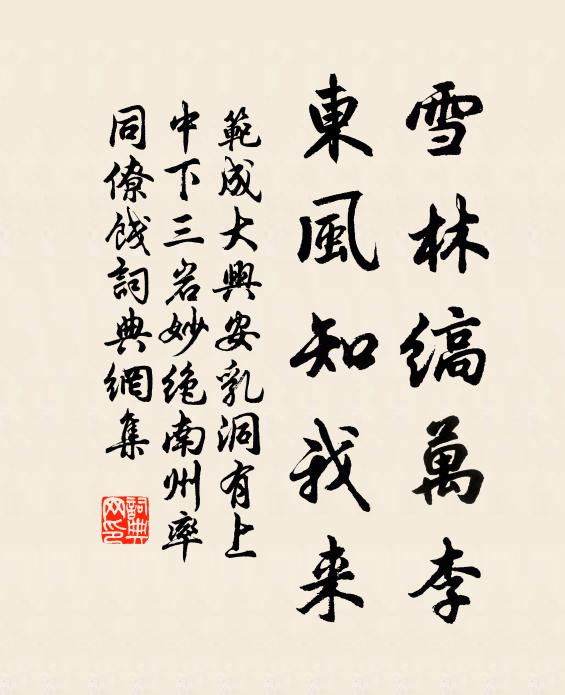 雪林縞萬李
東風知我来
範成大興安乳洞有上
中下三岩妙绝南州率
同僚餞詞典網集
詞典網印